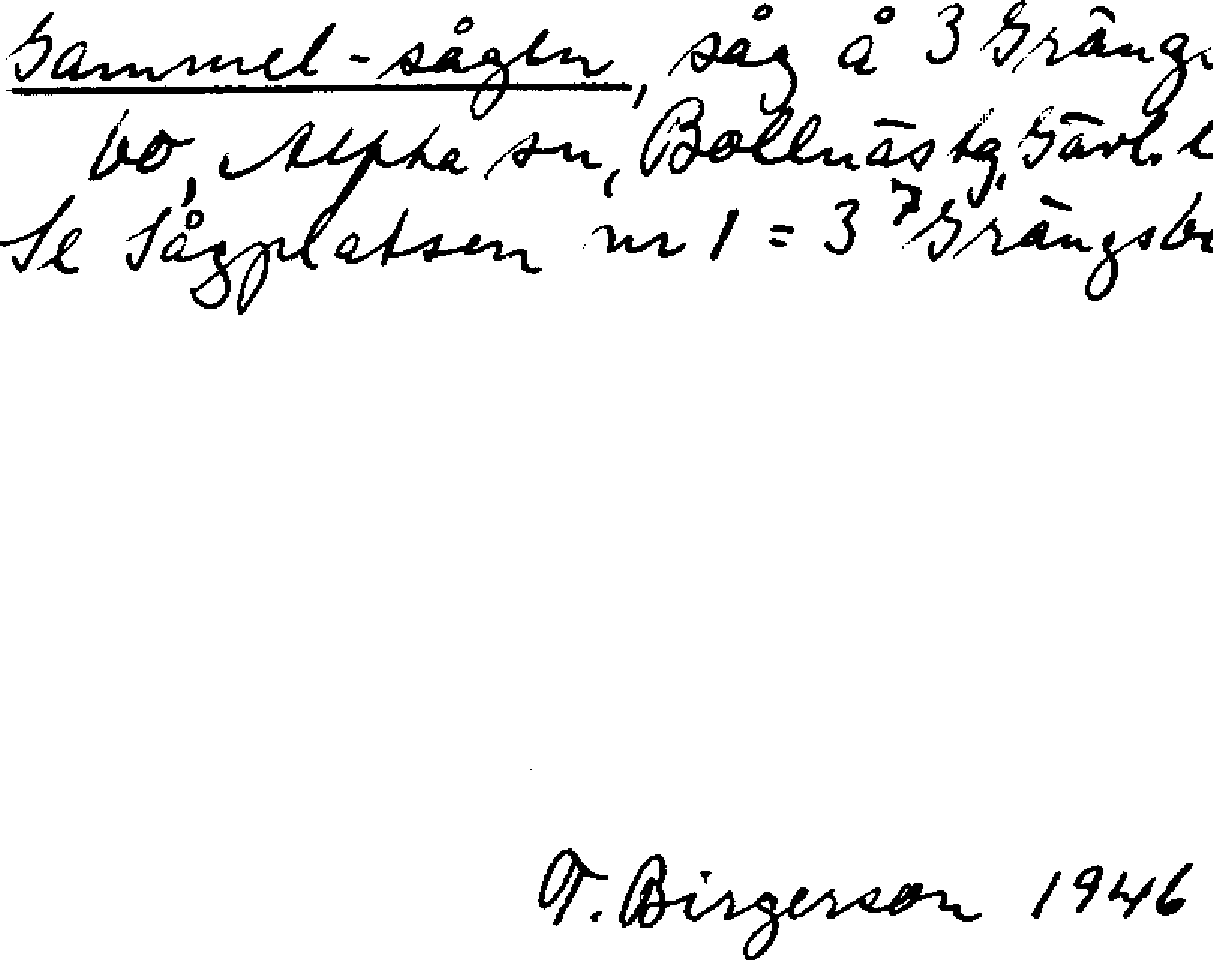 Gammel-sågen, såg å 3 Grängs
bo, Alpha sn, Bollnäs tg, Gävl. l
Se Sågplatsen nr 1 = 3⁷ Grängsbo
T. Birgerson 1946